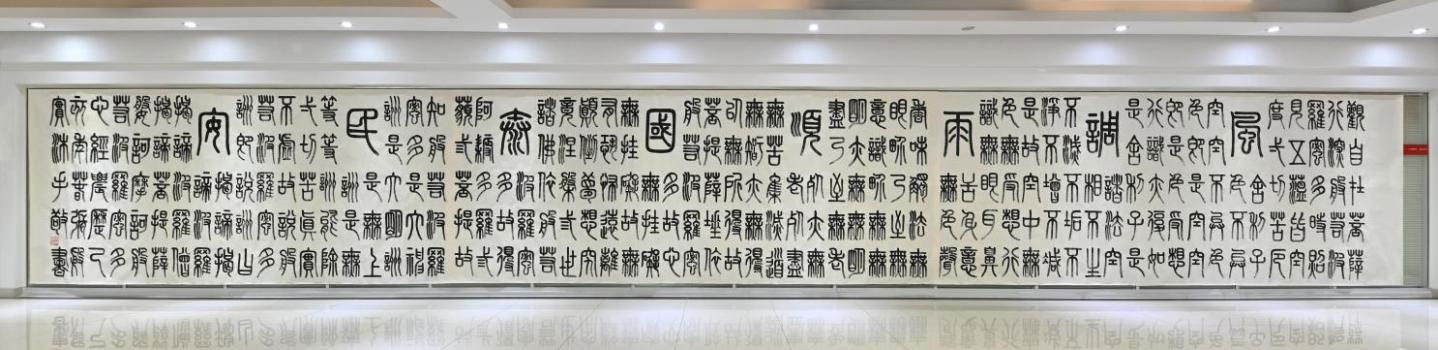 風
調
雨
順
國
泰
民
安
觀自在菩薩
行深般若波
羅蜜多時照
見五蘊皆空
度一切苦厄
舍利子
色不異
空空不異色
色即是空空
即是色受想
行識亦復如
是舍利子是
諸法空
相不生
不滅不垢不
淨不增不減
是故空中無
色無受想行
識無眼耳鼻
舌身意
無色聲
香味觸法無
眼界乃至無
意識界無無
明亦無無明
盡乃至無老
死亦無
老死盡
無苦集滅道
無智亦無得
以無所得故
菩提薩埵依
般若波羅蜜
多故心
無罣礙
無罣礙故無
有恐怖遠離
顛倒夢想究
竟涅槃三世
諸佛依般若
波羅蜜
多故得
阿耨多羅三
藐三菩提故
知般若波羅
蜜多是大神
咒是大明咒
是無上
咒是無
等等咒能除
一切苦真實
不虛故說般
若波羅蜜多
咒即說咒曰
揭諦揭
諦波羅
揭諦波羅僧
揭諦菩提薩
婆訶摩訶般
若波羅蜜多
心經農曆乙
沐手敬書